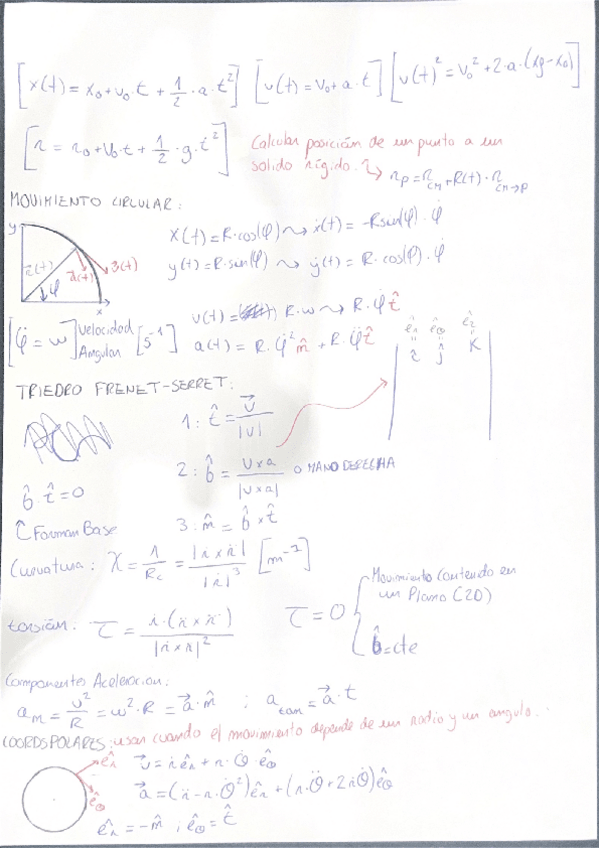 [x(t) = x₀ + v₀·t + 1/2·a·t²] [v(t) = v₀ + a·t] [v(t)² = v₀² + 2·a·(xf - x₀)]
[r = r₀ + v₀·t + 1/2·g·t²]
Calcular posición de un punto a un
solido rígido. ↝ r_P = r_CM + R(t)·r_CM→P
MOVIMIENTO CIRCULAR:
y
r(t)
φ
a(t)
x
x(t) = R·cos(φ) ↝ ẋ(t) = -R sen(φ)·φ̇
y(t) = R·sen(φ) ↝ ẏ(t) = R·cos(φ)·φ̇
[φ̇ = w] Velocidad Angular [s⁻¹]
v(t) = R·w ↝ R·φ̇ t̂
a(t) = R·φ̇² n̂ + R·φ̈ t̂
ê_r ê_θ ê_z
î ĵ k̂
TRIEDRO FRENET-SERRET:
1: t̂ = v⃗/|v|
2: b̂ = v×a/|v×a| o MANO DERECHA
b̂·t̂ = 0
↑ Forman Base
3: n̂ = b̂×t̂
Curvatura: χ = 1/R_c = |ṙ×r̈|/|ṙ|³ [m⁻¹]
torsión: τ = ṙ·(r̈×r⃛)/|ṙ×r̈|²
τ = 0 { Movimiento Contenido en
un Plano (2D)
b̂ = cte
Componentes Aceleracion:
a_n = v²/R = w²·R = a⃗·n̂ ; a_tan = a⃗·t
COORDS POLARES: usar cuando el movimiento depende de un radio y un angulo.
ê_r
ê_θ
v⃗ = ṙ ê_r + r·θ̇·ê_θ
a⃗ = (r̈ - r·θ̇²) ê_r + (r·θ̈ + 2ṙθ̇) ê_θ
ê_r = -n̂ ; ê_θ = t̂